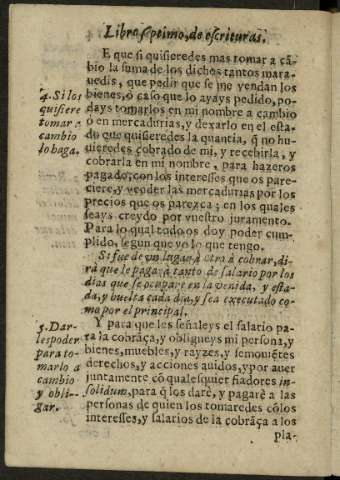 Libro septimo, de escrituras.
E que si quisieredes mas tomar a cã-
bio la suma de los dichos tantos mara-
uedis, que pedir que se me vendan los
bienes, ò caso que lo ayays pedido, po-
days tomarlos en mi nombre a cambio
ò en mercadurias, y dexarlo en el esta-
do que quisieredes la quantia, q̃ no hu-
uieredes cobrado de mi, y recebirla, y
cobrarla en mi nombre, para hazeros
pagado, con los interesses que os pare-
ciere, y vender las mercadurias por los
precios que os parezca; en los quales
seays creydo por vuestro juramento.
Para lo qual todo os doy poder cum-
plido, segun que yo lo que tengo.
Si fue de un lugar à otro à cobrar, di-
rà que le pagarà tanto de salario por los
dias que se ocupare en la venida, y esta-
da, y buelta cada dia, y sea executado co-
mo por el principal.
Y para que les señaleys el salario pa-
ra la cobrãça, y obligueys mi persona, y
bienes, muebles, y rayzes, y semouiẽtes
derechos, y acciones auidos, y por auer
juntamente cõ qualesquier fiadores in-
solidum, para q̃ los darè, y pagarè a las
personas de quien los tomaredes cõ los
interesses, y salarios de la cobrãça a los
pla-
4. Si los
quisiere
tomar a
cambio
lo haga.
5. Dar-
les poder
para to-
marlo a
cambio
y obli-
gar.